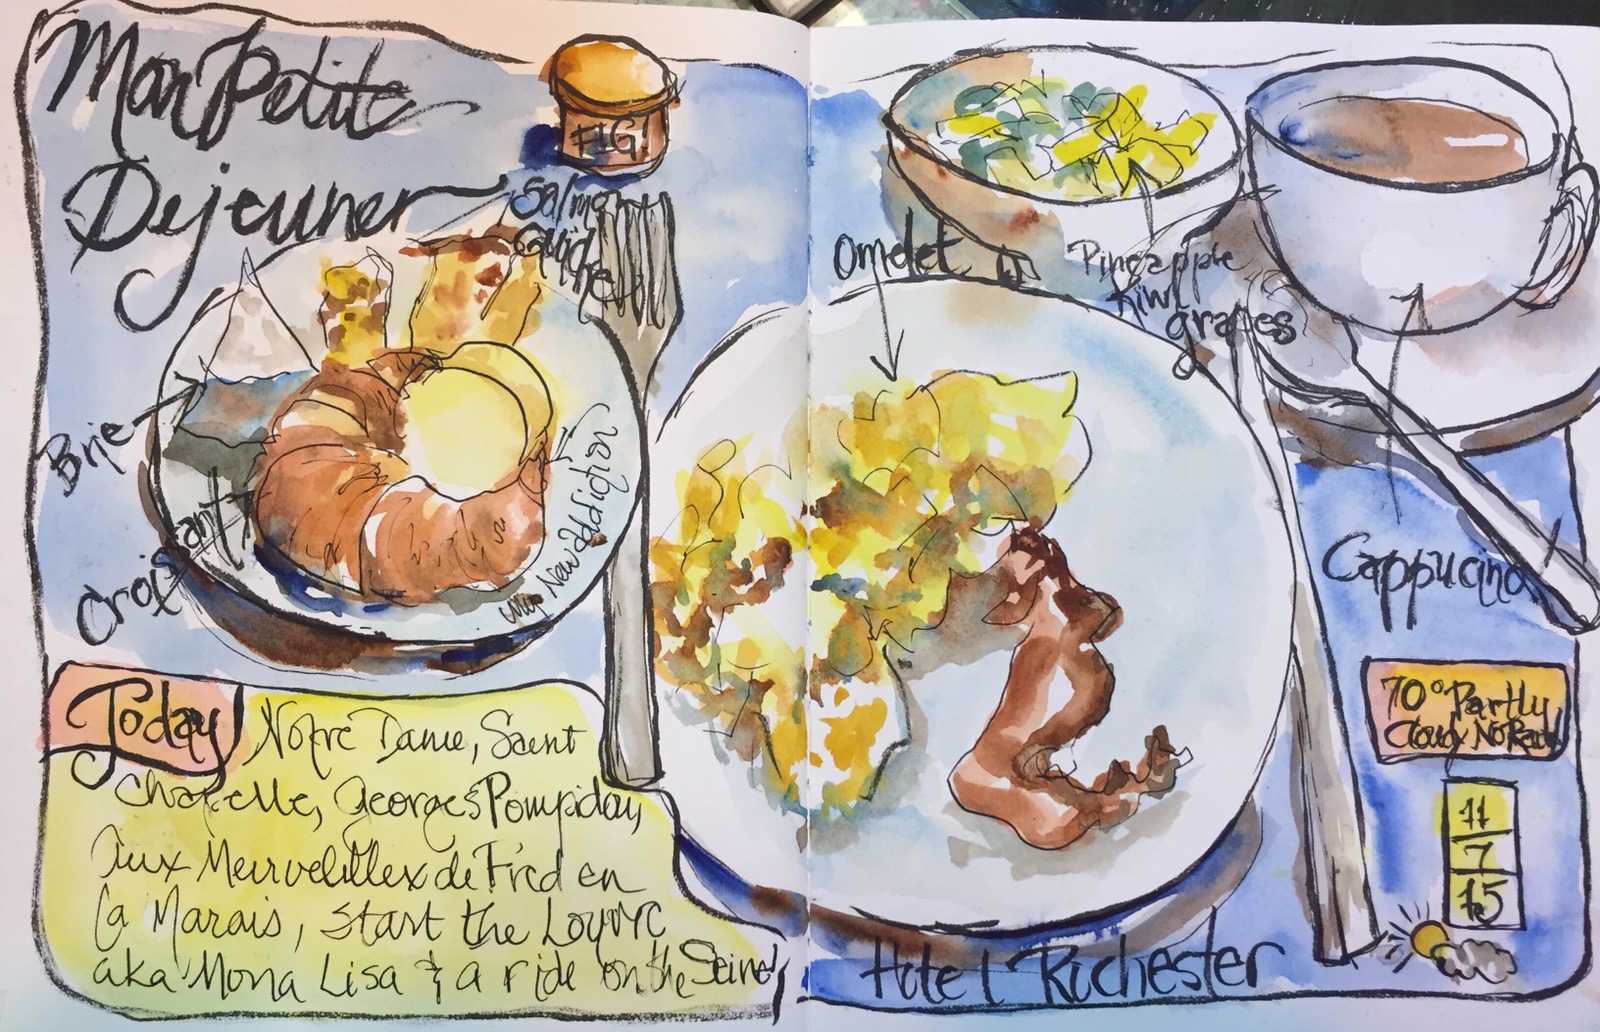 Mon Petite
Dejeuner
FIG.
Salmon
Quiche
Brie
Croissant
My New addidtion
Omelet
Pineapple
Kiwi
grapes
Cappucino
70° Partly
Cloudy No Rain
11
7
15
Today Notre Dame, Saint
Chapelle, Georges Pompidou,
Aux Merveilllex de Fred en
La Marais, start the Louvre
aka Mona Lisa & a ride on the Seine!
Hotel Rochester